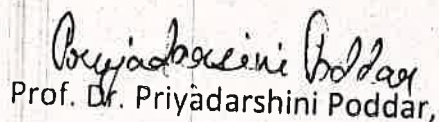 Priyadarsini Poddar
Prof. Dr. Priyadarshini Poddar,